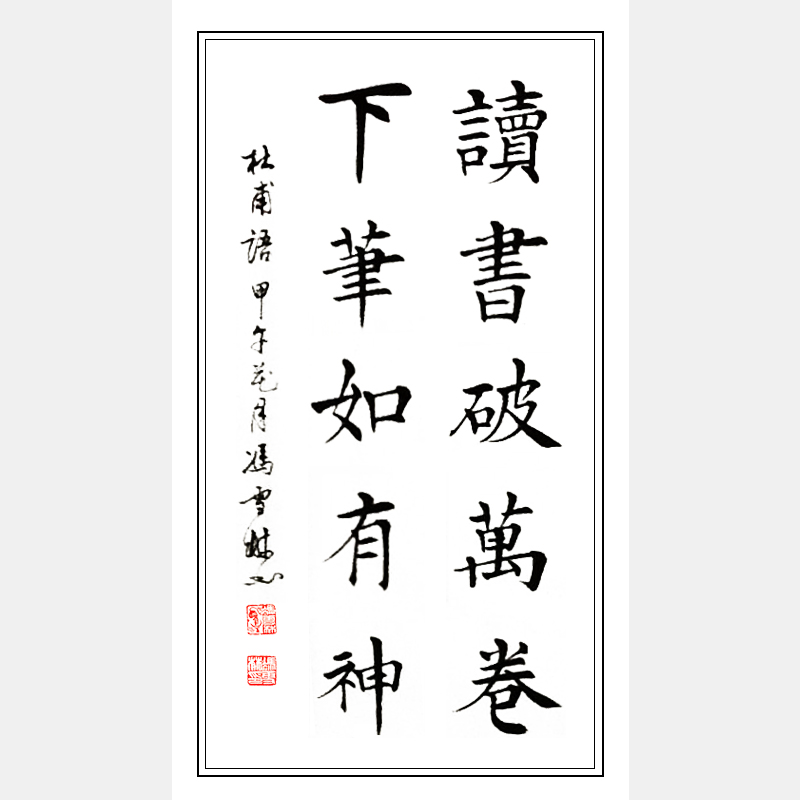 讀書破萬卷
下筆如有神
杜甫語 甲午花月馮雪林书